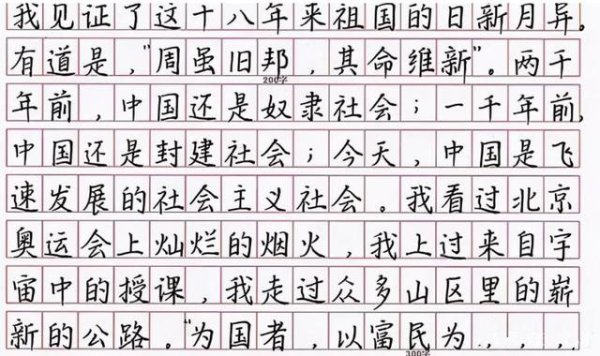 我见证了这十八年来祖国的日新月异。
有道是，“周虽旧邦，其命维新”。两千
200字
年前，中国还是奴隶社会；一千年前，
中国还是封建社会；今天，中国是飞
速发展的社会主义社会。我看过北京
奥运会上灿烂的烟火，我上过来自宇
宙中的授课，我走过众多山区里的崭
新的公路。“为国者，以富民为，，，
300字